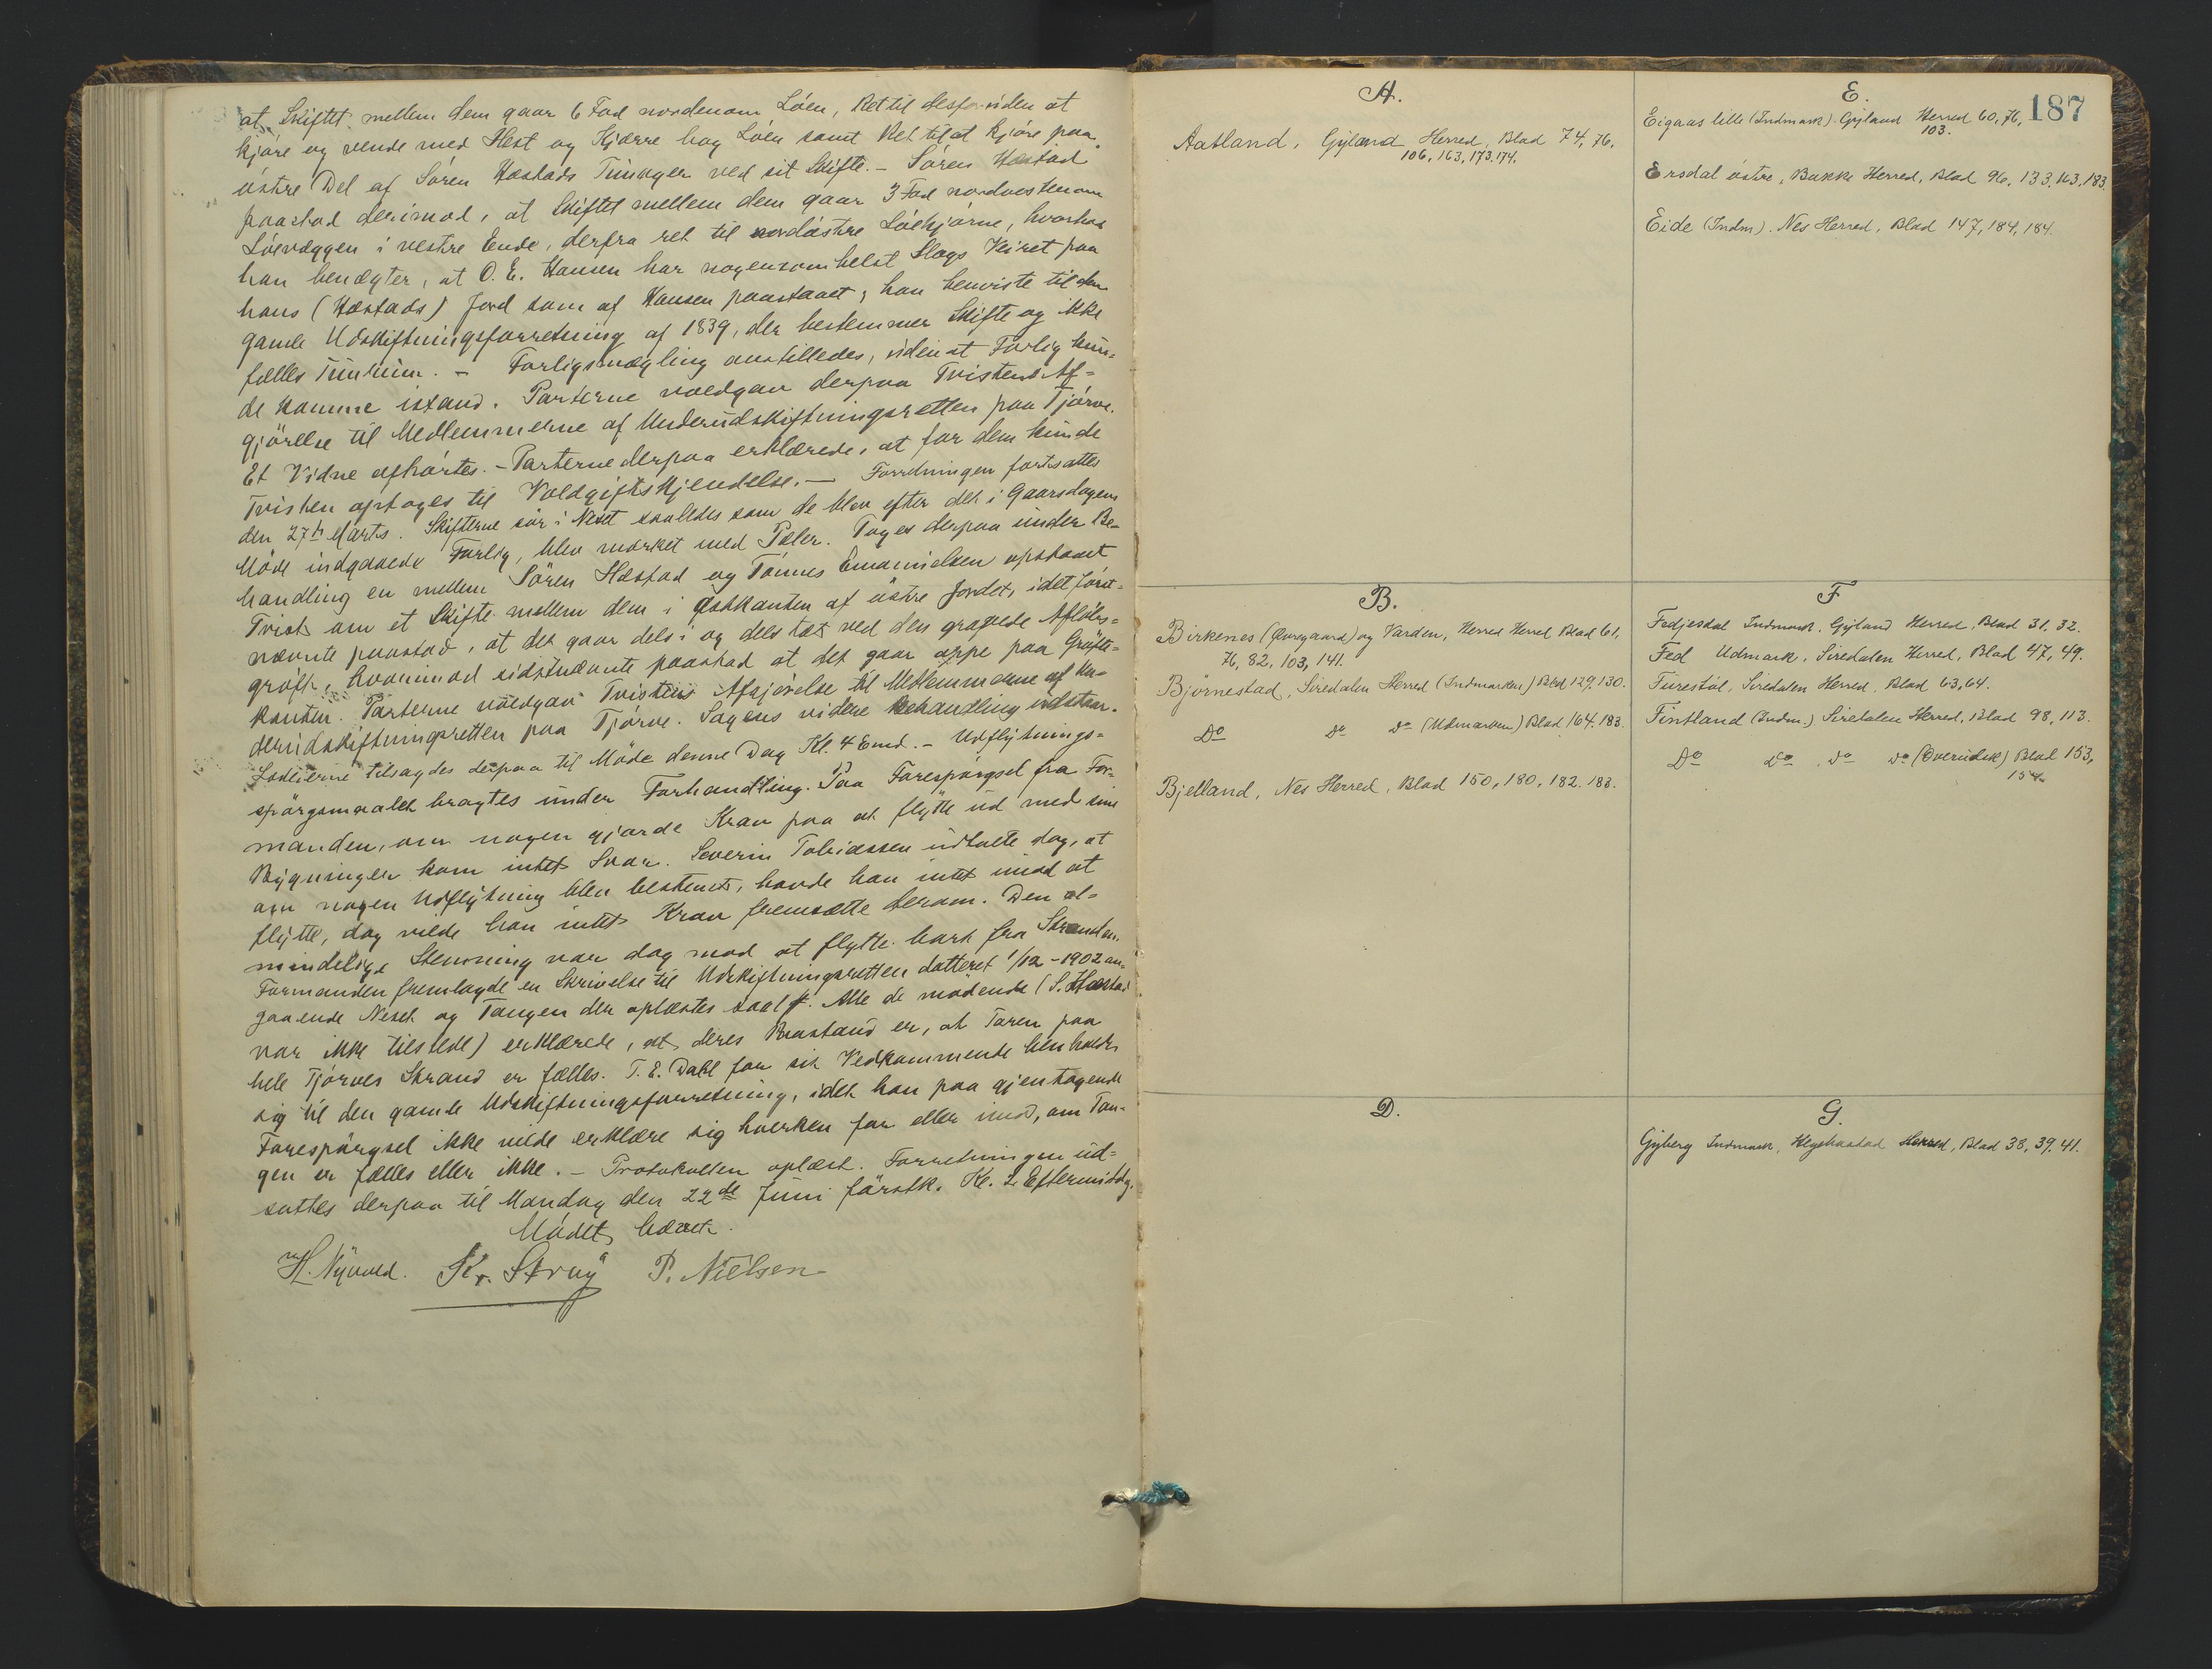 at Skiftet mellem dem gaar 6 Fod nordenom Löen, Ret til desforuden at
kjöre og vende med Hest og Kjærre bag Löen samt Ret til at kjöre paa
östre Del af Sören Hæstads Tunvogn ved sit Skifte. - Sören Hæstad
paastod derimod, at Skiftet mellem dem gaar 3 Fod nordvestenom
Löevæggen i vestre Ende, derfra ret til nordöstre Löehjörne, hvorhos
han benægter, at O. E. Hansen har nogensomhelst Slags Veiret paa
hans (Hæstads) Jord som af Hansen paastaaet; han henviste til den
gamle Udskiftningsforretning af 1839, der bestemmer Skifte og ikke
fælles Tunrum. - Forligsmægling anstilledes, uden at Forlig kun-
de komme istand. Parterne voldgav derpaa Tvistens Af=
gjörelse til Medlemmerne af Underudskiftningsretten paa Tjörve.
Et Vidne afhörtes. - Parterne derpaa erklærede, at for dem kunde
Tvisten optages til Voldgiftskjendelse. - Forretningen fortsattes
den 27de Marts. Skifterne sör i Neset saaledes som de blev efter det i Gaarsdagens
Möde indgaaede Forlig, blev mærket med Pæler. Toges derpaa under Be-
handling en mellem Sören Hæstad og Tönnes Emanuelsen opstaaet
Tvist om et Skifte mellem dem i Østkanten af östre Jordet, idet först-
nævnte paastod, at det gaar dels i og dels tæt ved den gravede Aflöbs=
gröft, hvorimod sidstnævnte paastod at det gaar oppe paa Gröfte-
kanten. Parterne voldgav Tvistens Afgjörelse til Medlemmerne af Un-
derudskiftningsretten paa Tjörve. Sagens videre Behandling udstaar.
Lodeierne tilsagdes derpaa til Möde denne Dag Kl. 4 Emd. - Udflytnings=
spörgsmaalet bragtes under Forhandling. Paa Forespörgsel fra For-
manden, om nogen gjorde Krav paa at flytte ud med sine
Bygninger kom intet Svar. Severin Tobiassen udtalte dog, at
om nogen Udflytning blev bestemt, havde han intet imod at
flytte, dog vilde han intet Krav fremsætte derom. Den al=
mindelige Stemning var dog mod at flytte bort fra Stranden.
Formanden fremlagde en Skrivelse til Udskiftningsretten datteret 1/12-1902 an-
gaaende Neset og Tangen der oplæstes saal. Alle de mödende (S. Hæstad
var ikke tilstede) erklærede, at deres Paastand er, at Taren paa
hele Tjörves Strand er fælles. T. E. Dahl for sit Vedkommende henholdt
sig til den gamle Udskiftningsforretning, idet han paa gjentagende
Forespörgsel ikke vilde erklære sig hverken for eller imod, om Tan-
gen er fælles eller ikke. - Protokollen oplæst. Forretningen ud=
sattes derpaa til Mandag den 22de Juni förstk. Kl. 2 Eftermiddg.
Mödet hævet.
H. Nyvold. Kr. Stray P. Nielsen
187
A.
Aatland, Gyland Herred, Blad 74, 76,
106, 163, 173, 174.
E.
Eigaas lille (Indmark). Gyland Herred 60, 76,
103.
Ersdal östre, Bakke Herred, Blad 96, 133, 163, 183.
Eide (Indm). Nes Herred, Blad 147, 184, 184.
B.
Birkenes (Övregaard) og Varden, Herred Herred Blad 61,
76, 82, 103, 141.
Björnestad, Siredalen Herred (Indmarken) Blad 129, 130.
Do do do (Udmarken) Blad 164, 183.
Bjelland, Nes Herred, Blad 150, 180, 182. 183.
F
Fedjesdal Indmark, Gyland Herred, Blad 31, 32.
Fed Udmark, Siredalen Herred, Blad 47, 49.
Furestöl, Siredalen Herred, Blad 63, 64.
Fintland (Indm.) Siredalen Herred, Blad 98, 113.
Do do do do (Overudsk) Blad 153,
154.
D.
G.
Gyberg Indmark, Hegebostad Herred, Blad 38, 39, 41.